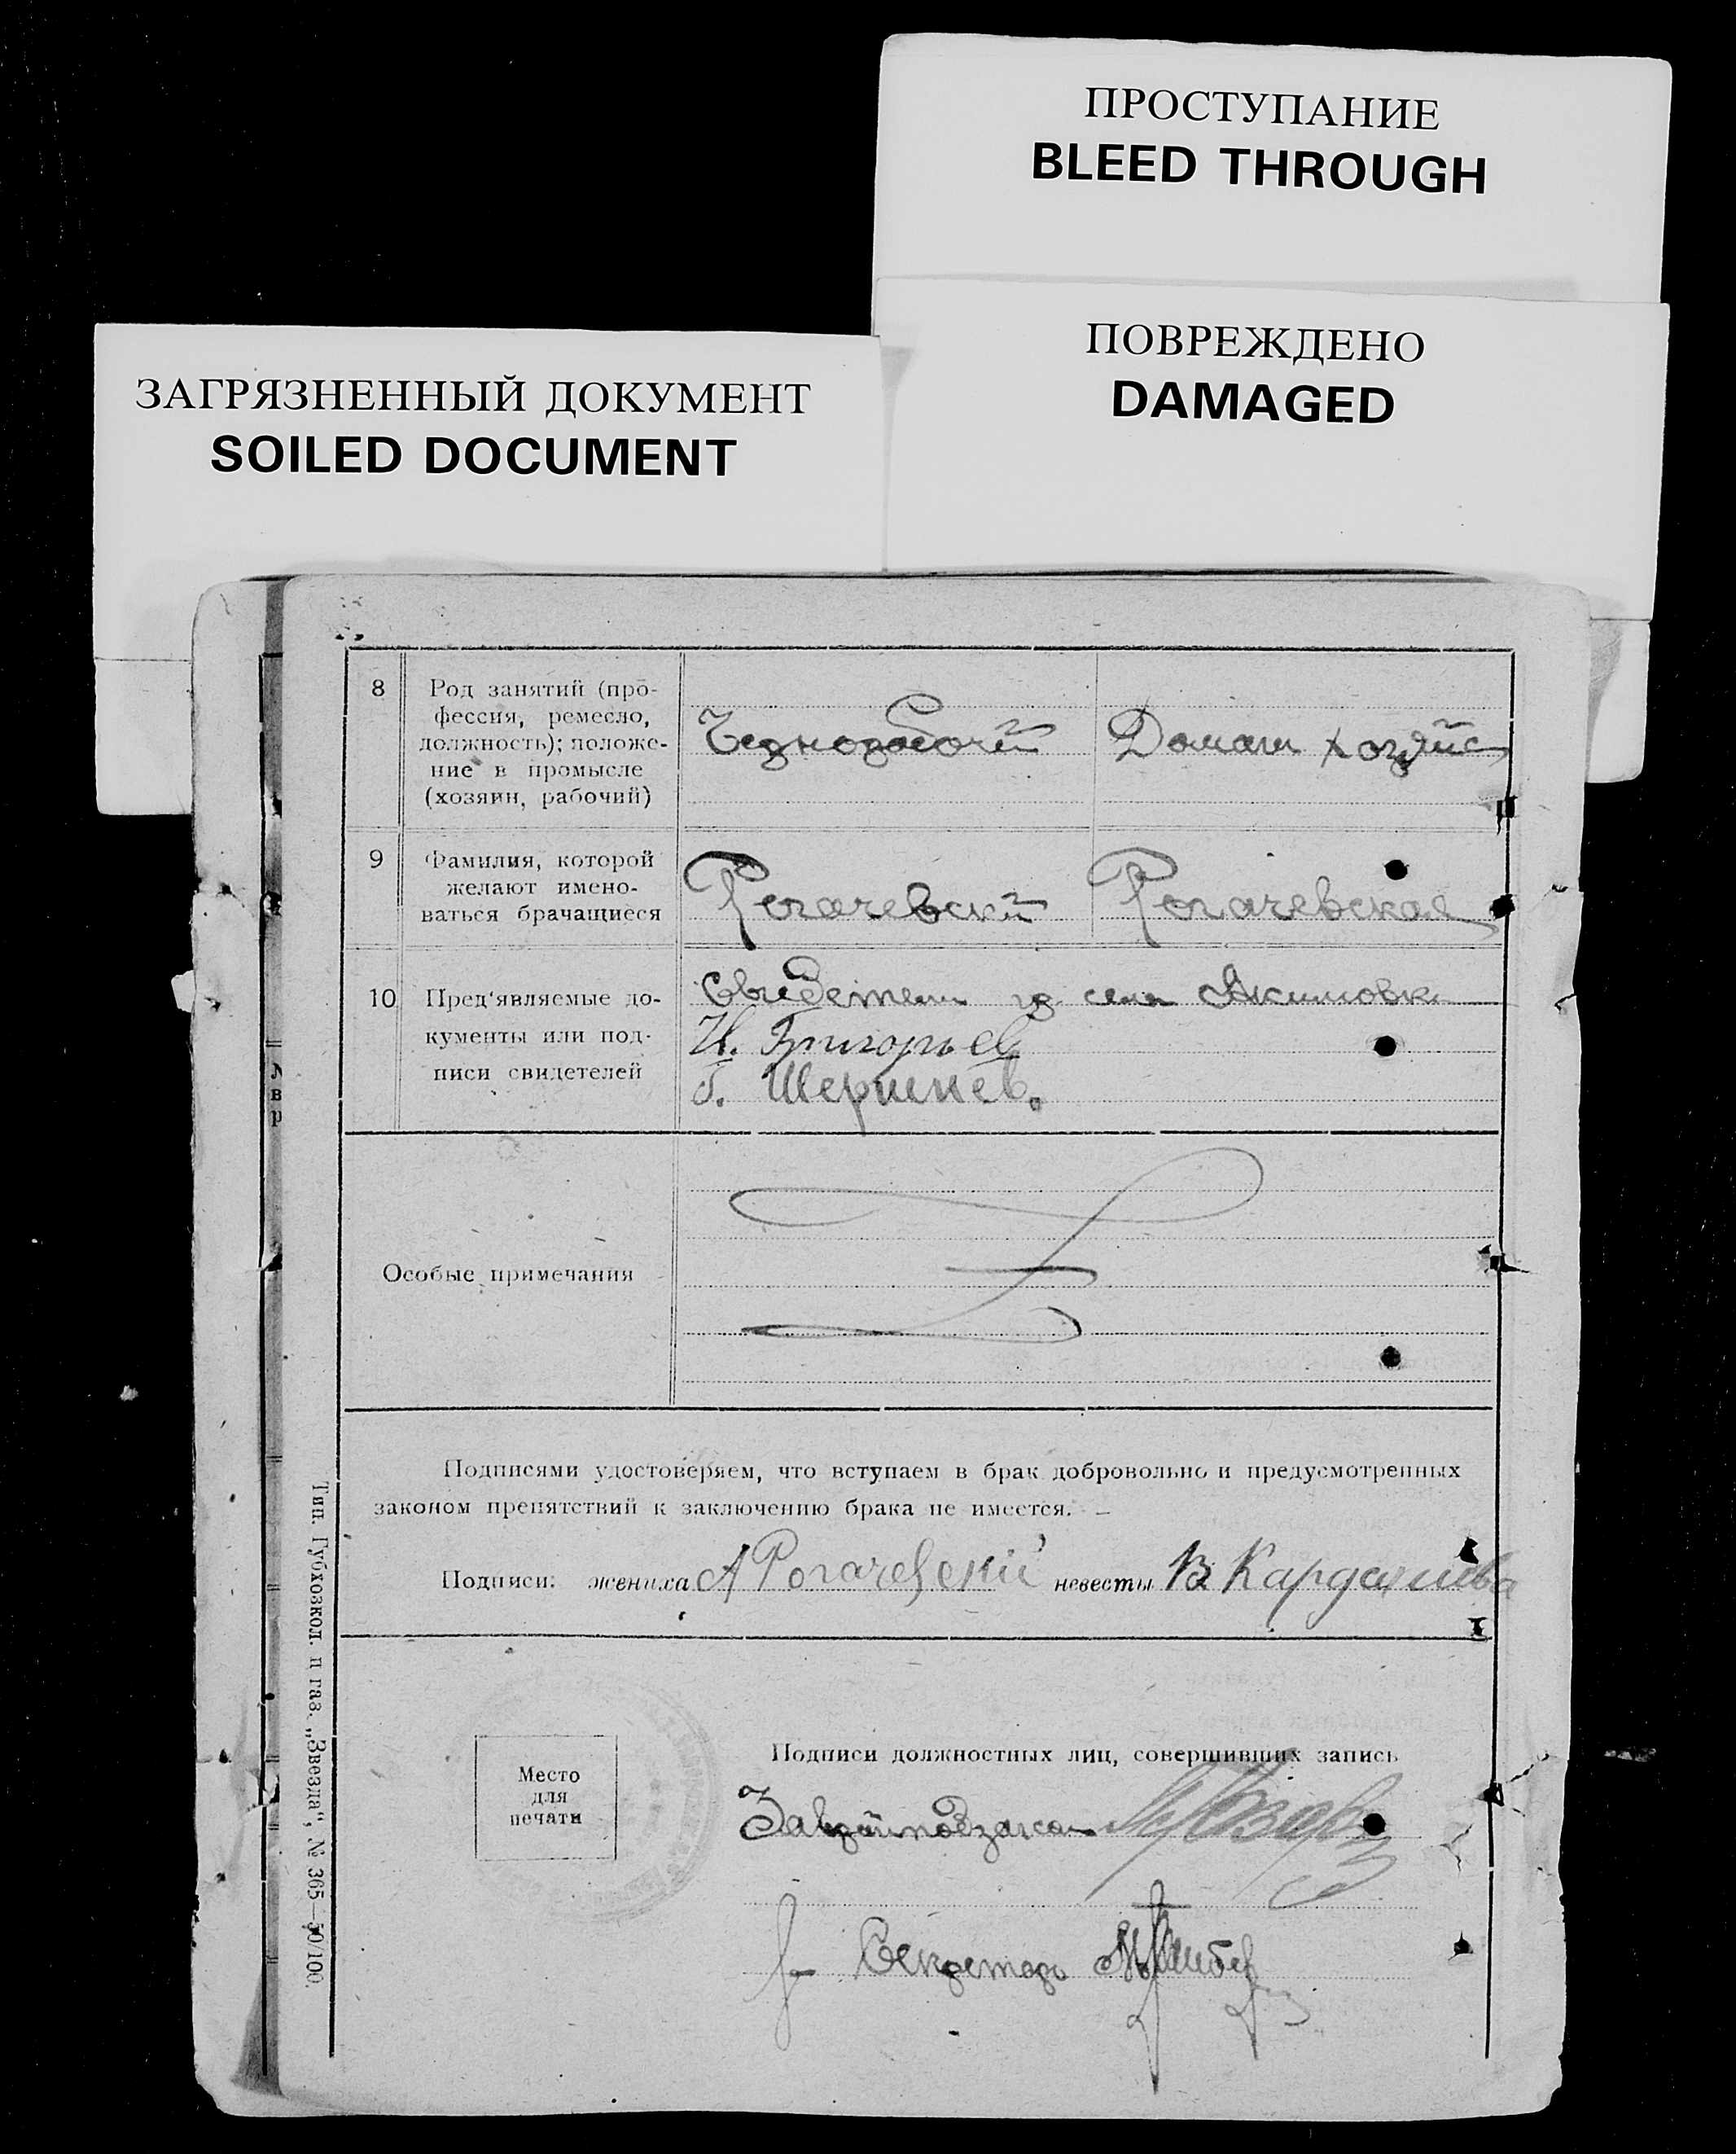 ПРОСТУПАНИЕ
BLEED THROUGH
ПОВРЕЖДЕНО
DAMAGED
ЗАГРЯЗНЕННЫЙ ДОКУМЕНТ
SOILED DOCUMENT
8
Род занятий (про-
фессия, ремесло,
должность); положе-
ние в промысле
(хозяин, рабочий)
Чернорабочий
Домаш хозяйс
9
Фамилия, которой
желают имено-
ваться брачащиеся
Рогачевский
Рогачевская
10
Пред'являемые до-
кументы или под-
писи свидетелей
Свидетели из села Акимовки
И. Григорьев
Шершнев.
Особые примечания
Подписями удостоверяем, что вступаем в брак добровольно и предусмотренных
законом препятствий к заключению брака не имеется. —
Подписи: жениха А Рогачевскій невесты В Кардашева
Место
для
печати
Подписи должностных лиц, совершивших запись
Секретарь
Тип. Губхозкол. п газ. „Звезда“, № 365—50/100.